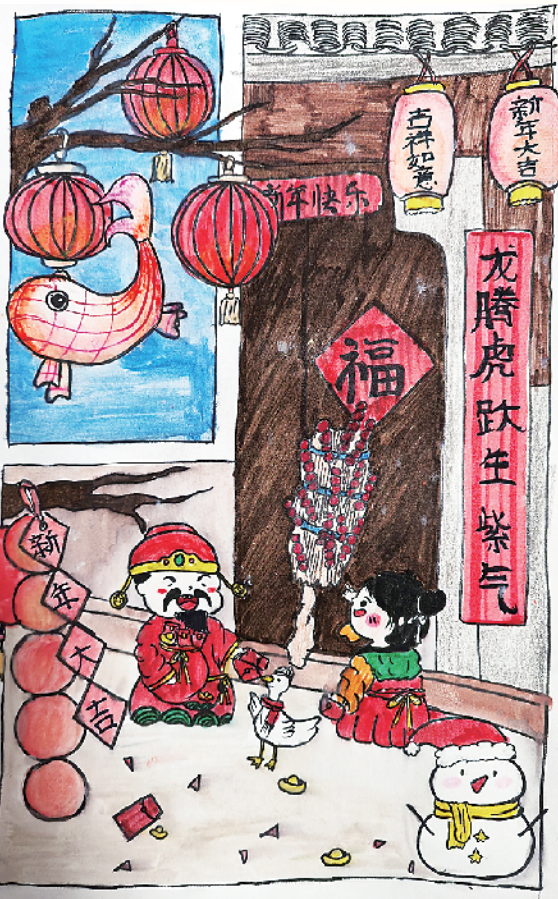 吉祥如意
新年大吉
新年快乐
龙腾虎跃生紫气
福
新年大吉